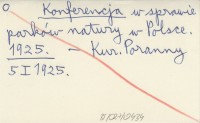 Konferencja w sprawie
parków natury w Polsce.
1925. — Kur. Poranny
5 I 1925.